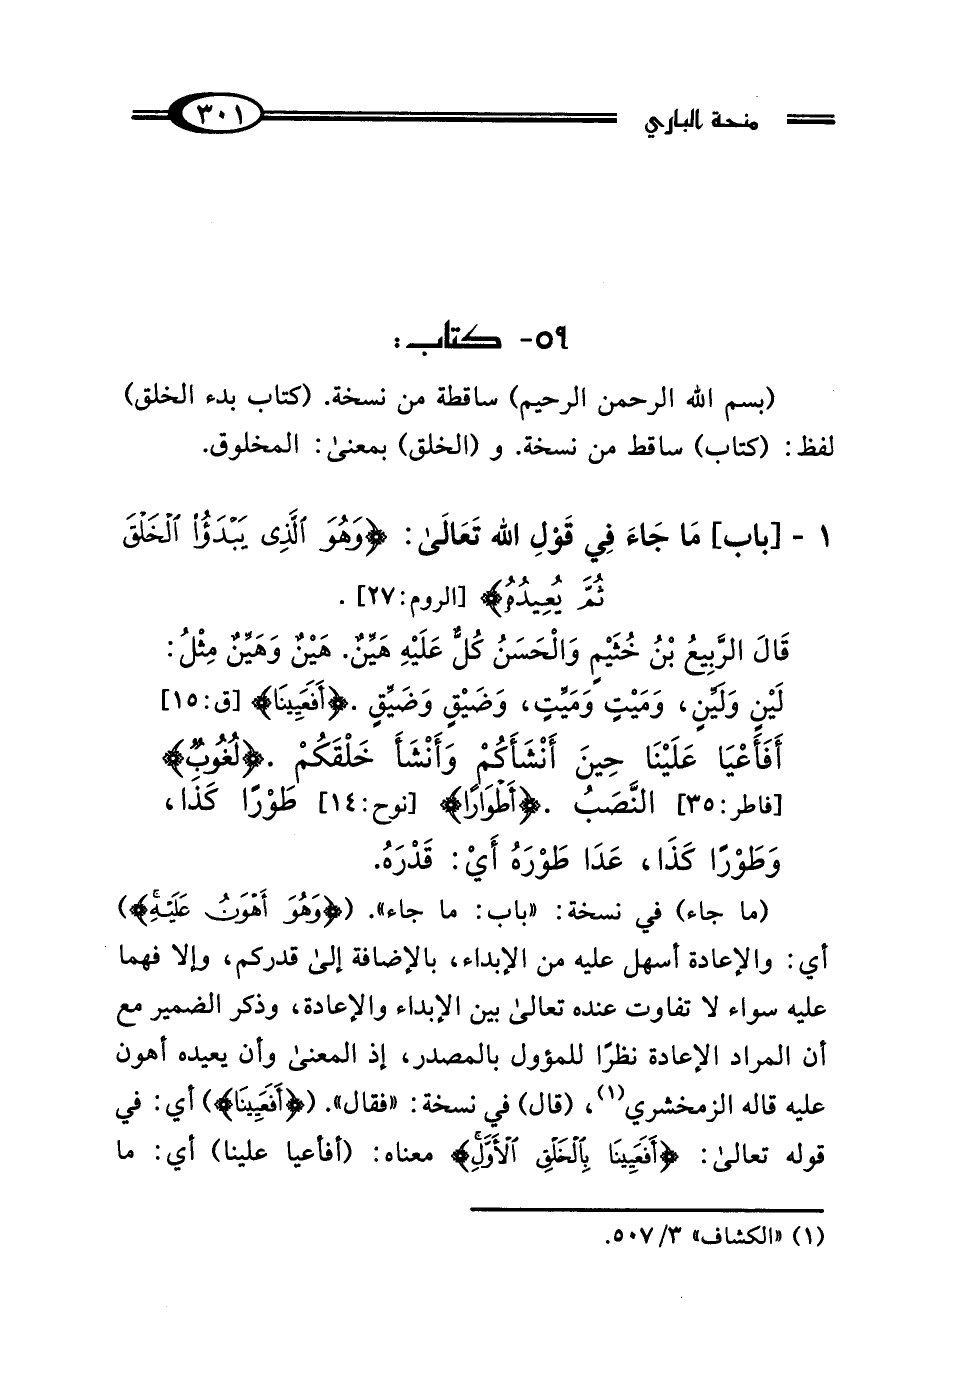 منحة الباري ٣٠١
٥٩- كتاب:
(بسم الله الرحمن الرحيم) ساقطة من نسخة. (كتاب بدء الخلق)
لفظ: (كتاب) ساقط من نسخة. و (الخلق) بمعنىٰ: المخلوق.
١ - [باب] مَا جَاءَ فِي قَوْلِ الله تَعَالَىٰ: ﴿وَهُوَ ٱلَّذِى يَبْدَؤُا۟ ٱلْخَلْقَ
ثُمَّ يُعِيدُهُۥ﴾ [الروم:٢٧] .
قَالَ الرَّبِيعُ بْنُ خُثَيْمٍ وَالْحَسَنُ كُلٌّ عَلَيْهِ هَيِّنٌ. هَيْنٌ وَهَيِّنٌ مِثْلُ:
لَيْنٍ وَلَيِّنٍ، وَمَيْتٍ وَمَيِّتٍ، وَضَيْقٍ وَضَيِّقٍ .﴿أَفَعَيِينَا﴾ [ق:١٥]
أَفَأَعْيَا عَلَيْنَا حِينَ أَنْشَأَكُمْ وَأَنْشَأَ خَلْقَكُمْ .﴿لُغُوبٌ﴾
[فاطر:٣٥] النَّصَبُ .﴿أَطْوَارًا﴾ [نوح:١٤] طَوْرًا كَذَا،
وَطَوْرًا كَذَا، عَدَا طَوْرَهُ أَيْ: قَدْرَهُ.
(ما جاء) في نسخة: «باب: ما جاء». (﴿وَهُوَ أَهْوَنُ عَلَيْهِۚ﴾)
أي: والإعادة أسهل عليه من الإبداء، بالإضافة إلىٰ قدركم، وإلا فهما
عليه سواء لا تفاوت عنده تعالىٰ بين الإبداء والإعادة، وذكر الضمير مع
أن المراد الإعادة نظرًا للمؤول بالمصدر، إذ المعنىٰ وأن يعيده أهون
عليه قاله الزمخشري(١)، (قال) في نسخة: «فقال». (﴿أَفَعَيِينَا﴾) أي: في
قوله تعالىٰ: ﴿أَفَعَيِينَا بِٱلْخَلْقِ ٱلْأَوَّلِۚ﴾ معناه: (أفأعيا علينا) أي: ما
(١) «الكشاف» ٣/ ٥٠٧.